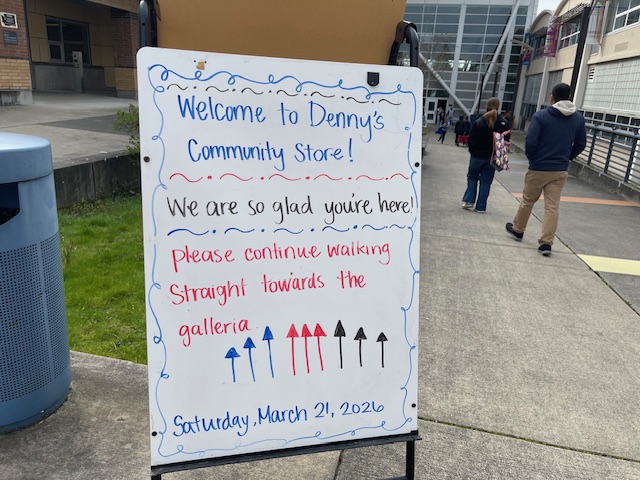 Welcome to Denny's
Community Store!
We are so glad you're here!
Please continue walking
Straight towards the
galleria
Saturday, March 21, 2026